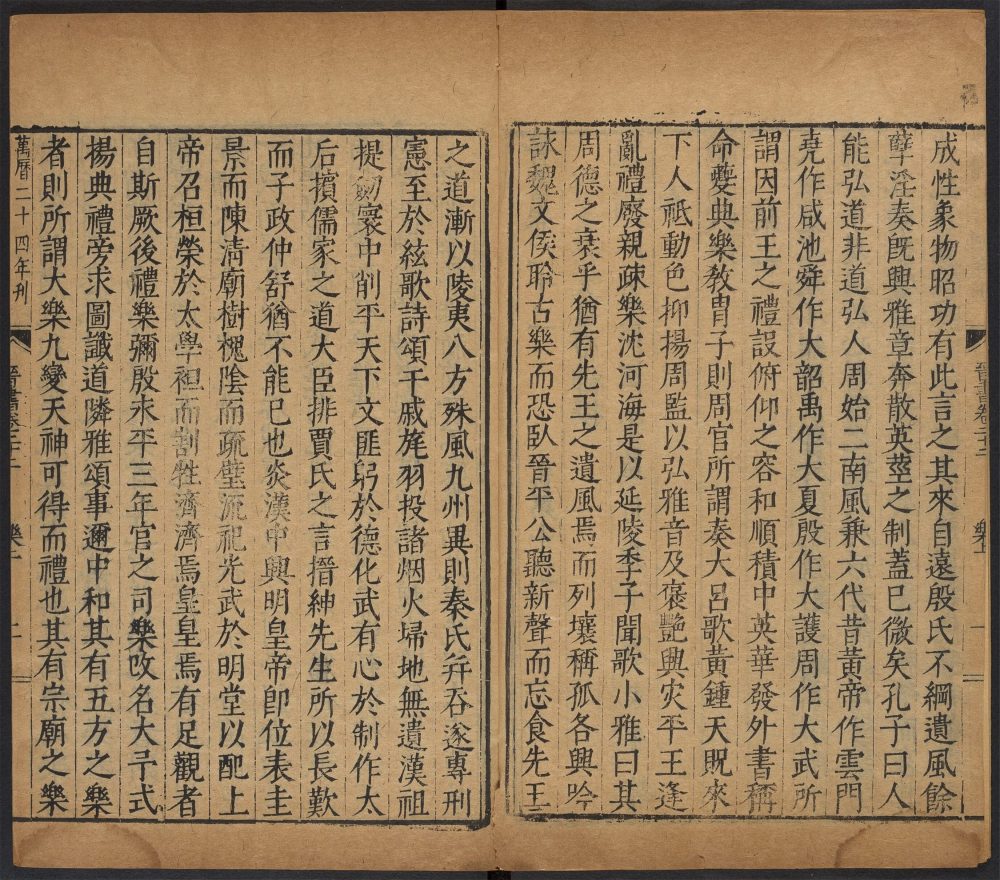 成性象物昭功有此言之其來自遠殷氏不綱遺風餘
孽淫奏旣興雅章奔散英莖之制蓋已微矣孔子曰人
能弘道非道弘人周始二南風兼六代昔黃帝作雲門
堯作咸池舜作大韶禹作大夏殷作大濩周作大武所
謂因前王之禮設俯仰之容和順積中英華發外書稱
命夔典樂敎胄子則周官所謂奏大呂歌黃鍾天貺來
下人祇動色抑揚周監以弘雅音及褒艷興灾平王逢
亂禮廢親疎樂沈河海是以延陵季子聞歌小雅曰其
周德之衰乎猶有先王之遺風焉而列壤稱孤各興吟
詠魏文侯聆古樂而恐臥晉平公聽新聲而忘食先王
晉書卷二十二
樂上
一
之道漸以陵夷八方殊風九州異則秦氏并吞遂專刑
憲至於絃歌詩頌干戚旄羽投諸烟火埽地無遺漢祖
提劒寰中削平天下文匪躬於德化武有心於制作太
后擯儒家之道大臣排賈氏之言搢紳先生所以長歎
而子政仲舒猶不能已也炎漢中興明皇帝卽位表圭
景而陳淸廟樹槐陰而疏璧流祀光武於明堂以配上
帝召桓榮於太學袒而割牲濟濟焉皇皇焉有足觀者
自斯厥後禮樂彌殷永平三年官之司樂改名大予式
揚典禮旁求圖讖道隣雅頌事邇中和其有五方之樂
者則所謂大樂九變天神可得而禮也其有宗廟之樂
萬曆二十四年刋
晉書卷二十二
樂上
二